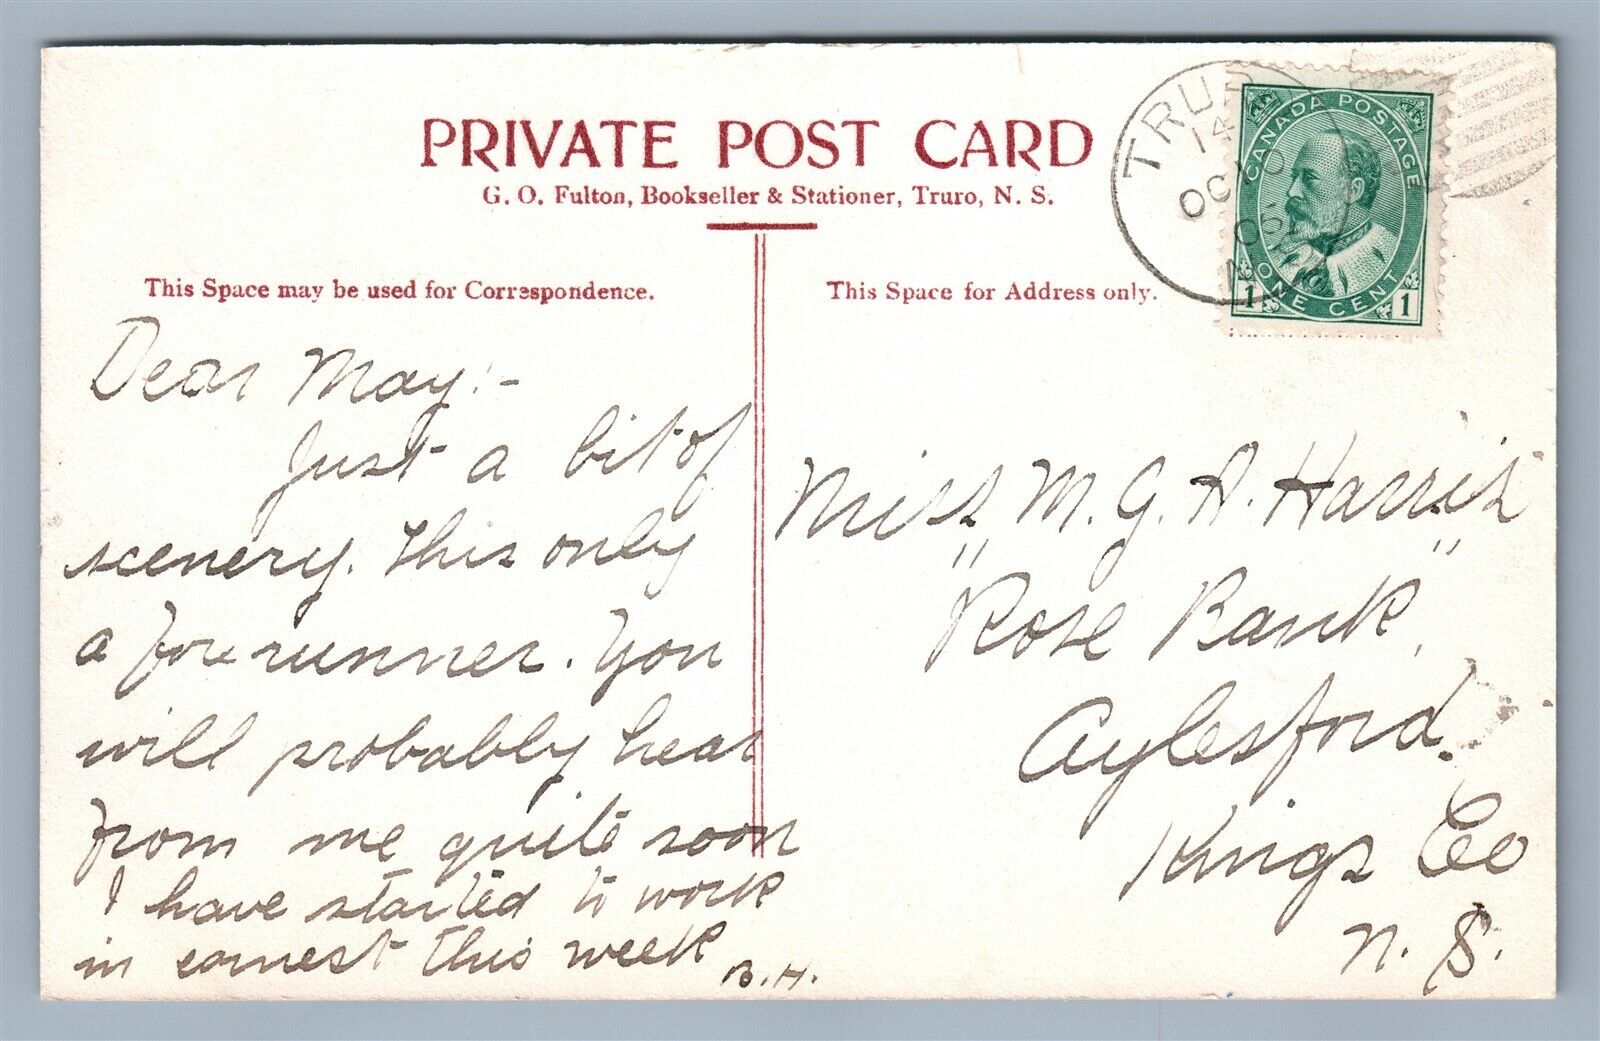 PRIVATE POST CARD
G. O. Fulton, Bookseller & Stationer, Truro, N. S.
This Space may be used for Correspondence.
This Space for Address only.
TRURO
14
OC 10
05
N.S.
CANADA POSTAGE
ONE CENT
1 1
Dear May:-
Just a bit of
scenery. This only
a forerunner. You
will probably hear
from me quite soon
I have started to work
in earnest this week
B.H.
Miss M. G. A. Harris
"Rose Bank,"
Aylesford.
Kings Co
N. S.